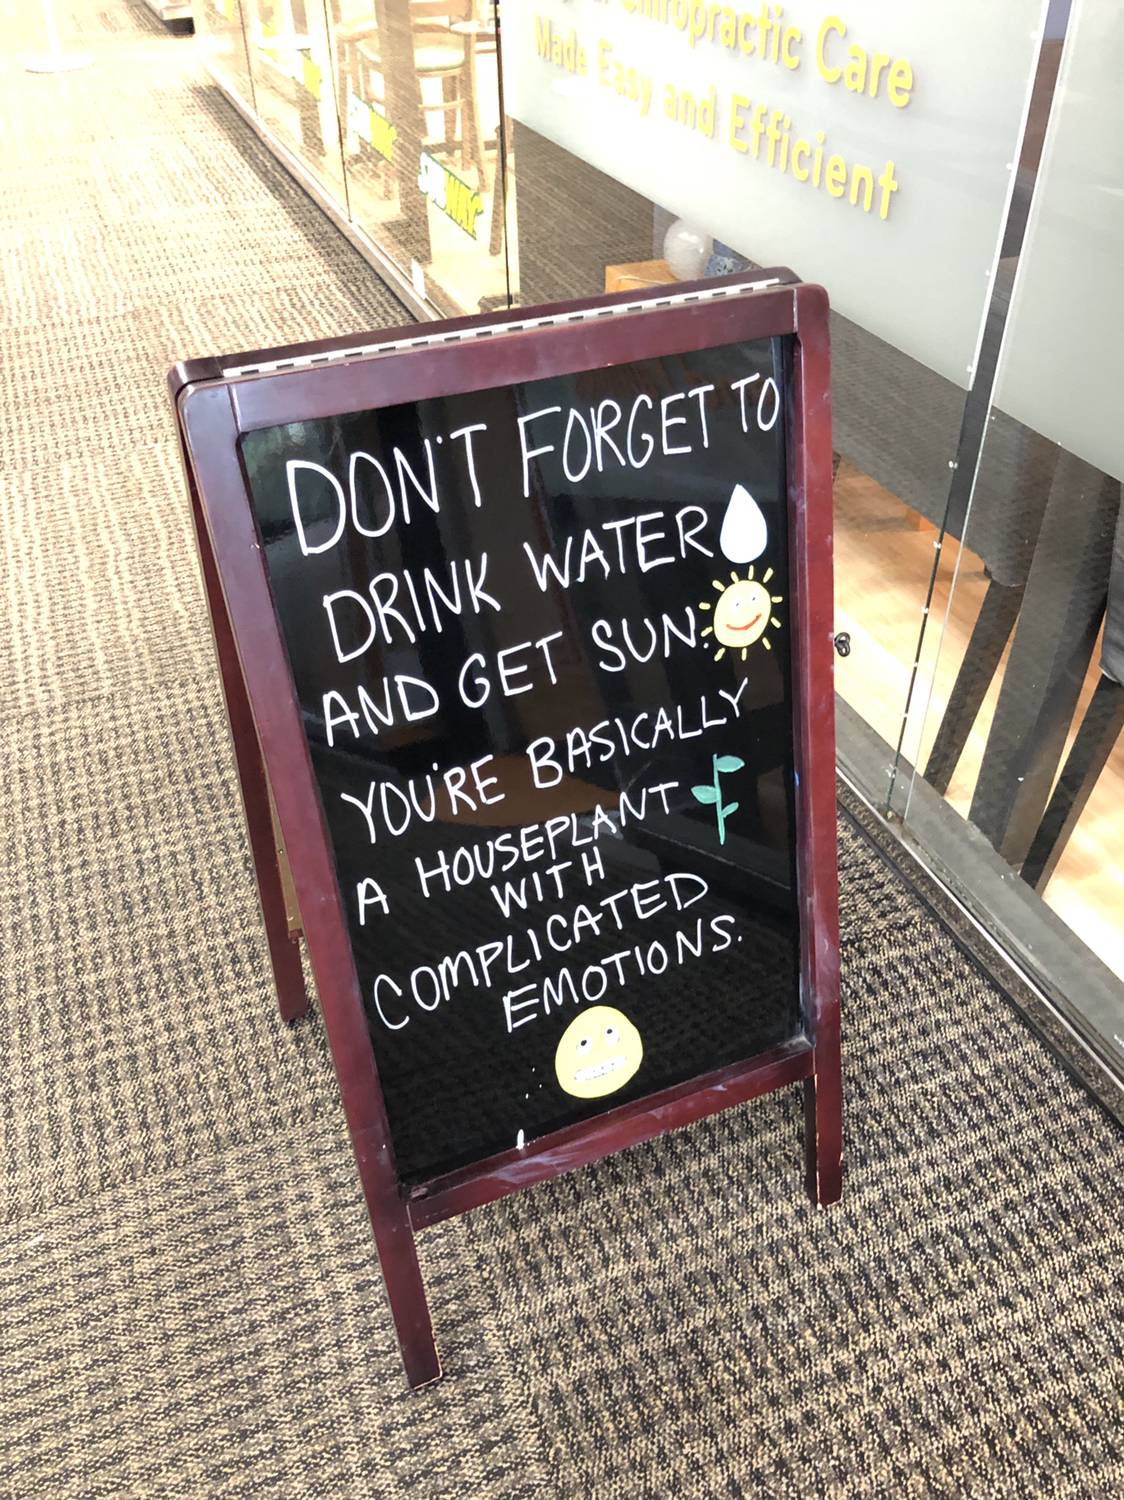 Chiropractic Care
Made Easy and Efficient
SUBWAY
DON'T FORGET TO
DRINK WATER
AND GET SUN.
YOU'RE BASICALLY
A HOUSEPLANT
WITH
COMPLICATED
EMOTIONS.